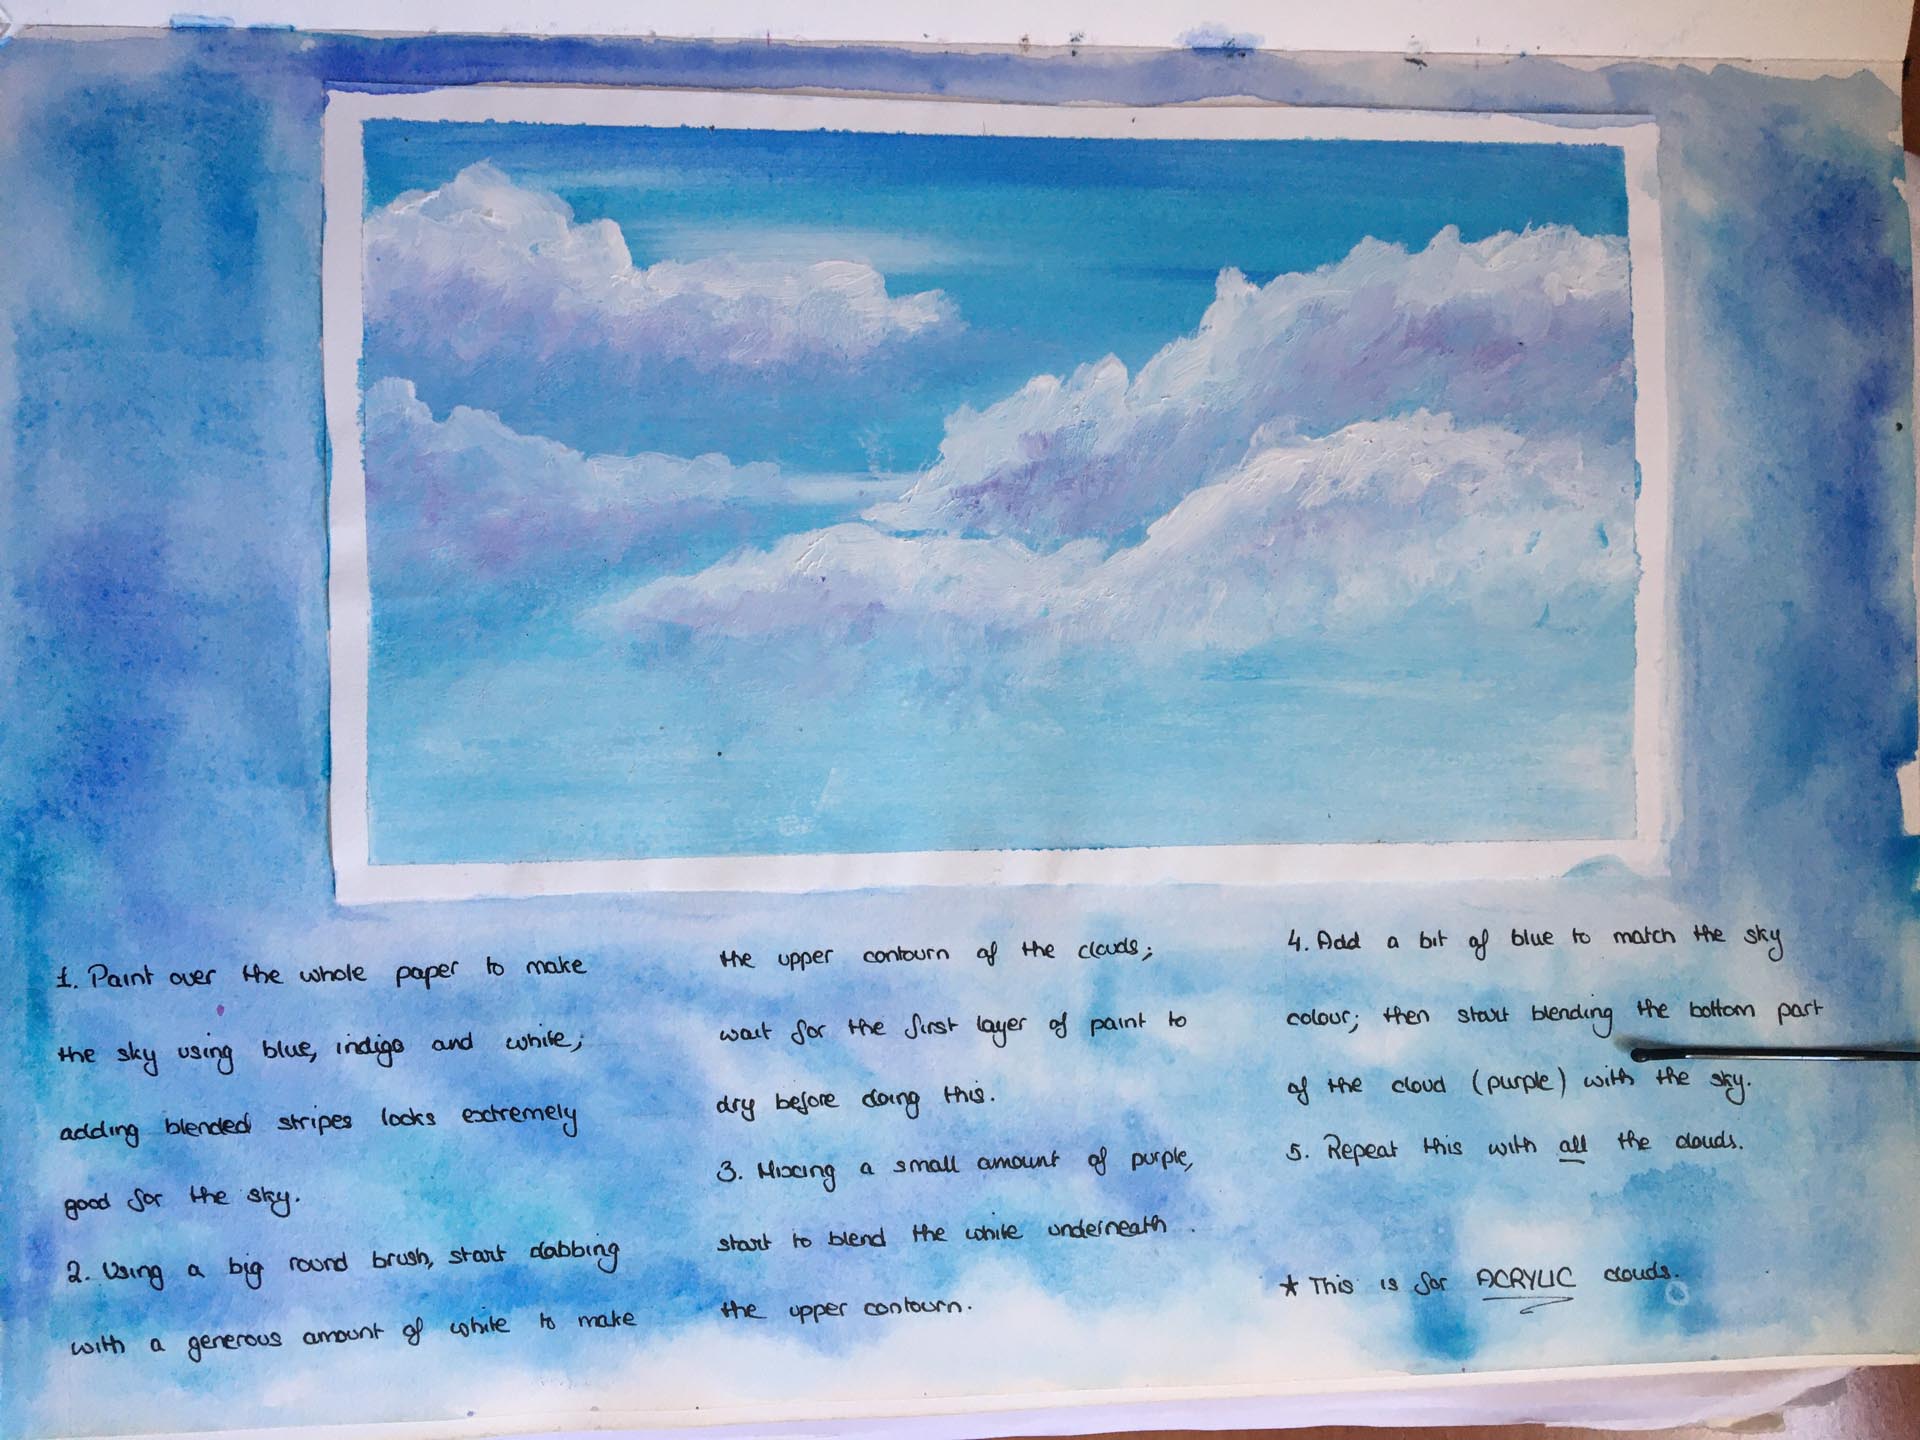 1. Paint over the whole paper to make
the sky using blue, indigo and white;
adding blended stripes looks extremely
good for the sky.
2. Using a big round brush, start dabbing
with a generous amount of white to make
the upper contourn of the clouds;
wait for the first layer of paint to
dry before doing this.
3. Mixing a small amount of purple,
start to blend the white underneath
the upper contourn.
4. Add a bit of blue to match the sky
colour; then start blending the bottom part
of the cloud (purple) with the sky.
5. Repeat this with all the clouds.
★ This is for ACRYLIC clouds.